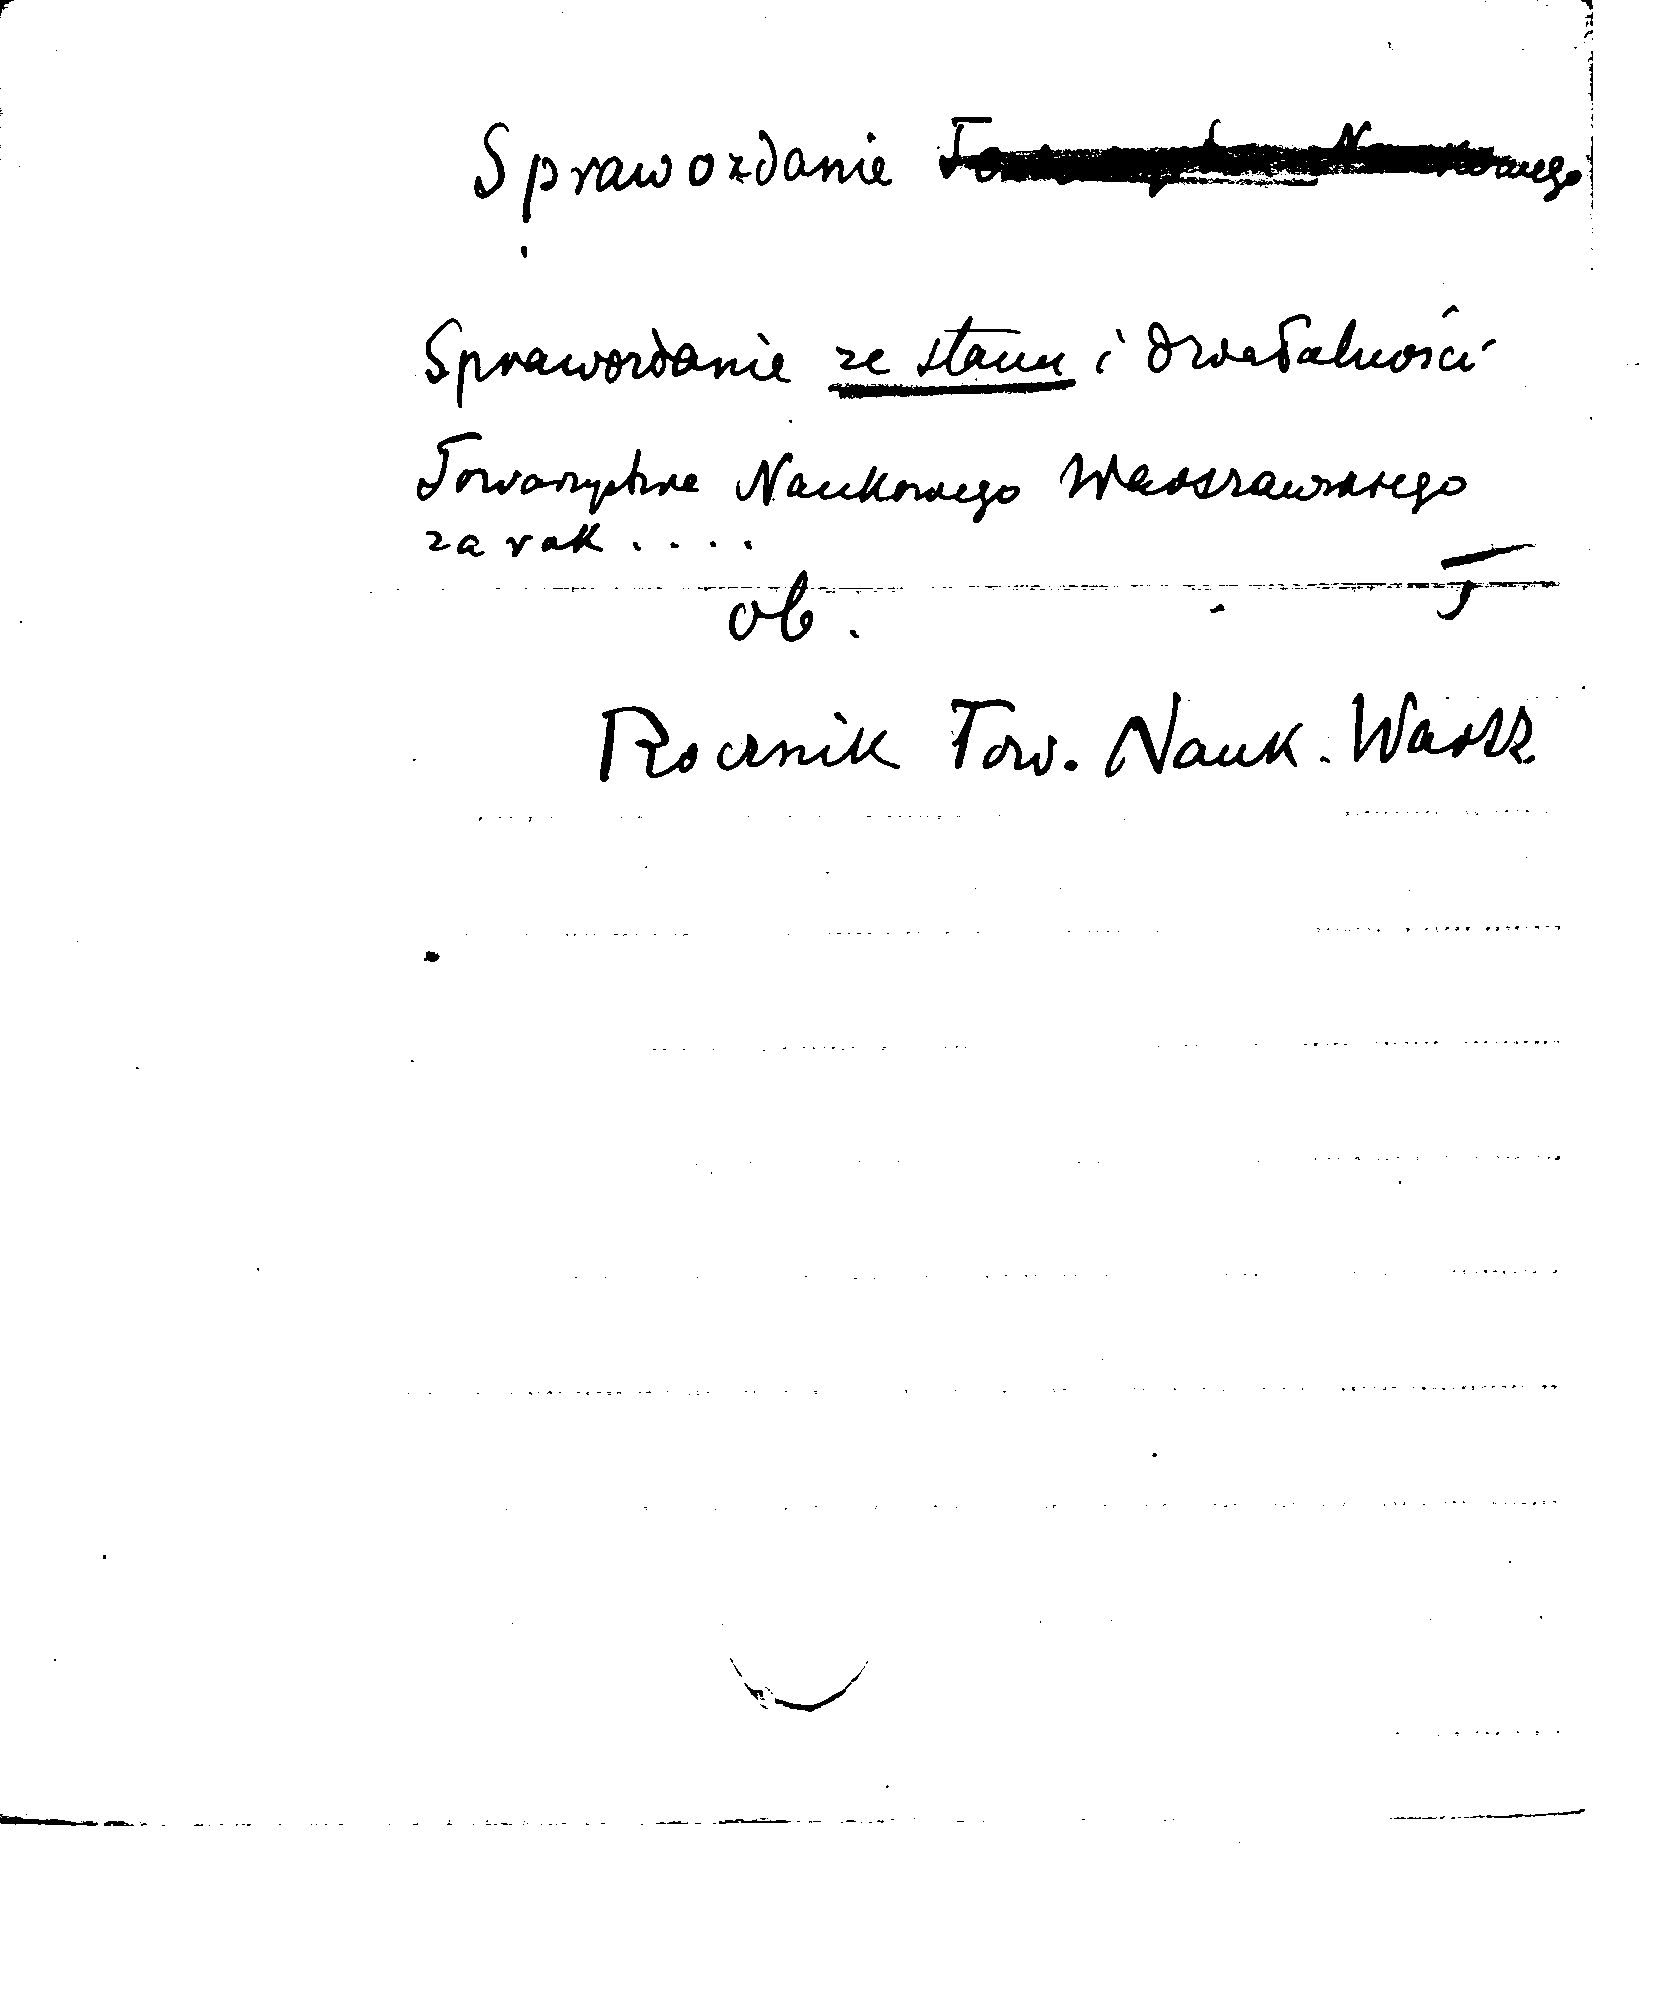 Sprawozdanie Towarzystwa Naukowego
Sprawozdanie ze stanu i działalności
Towarzystwa Naukowego Warszawskiego
za rok ....
ob.
Rocznik Tow. Nauk. Warsz